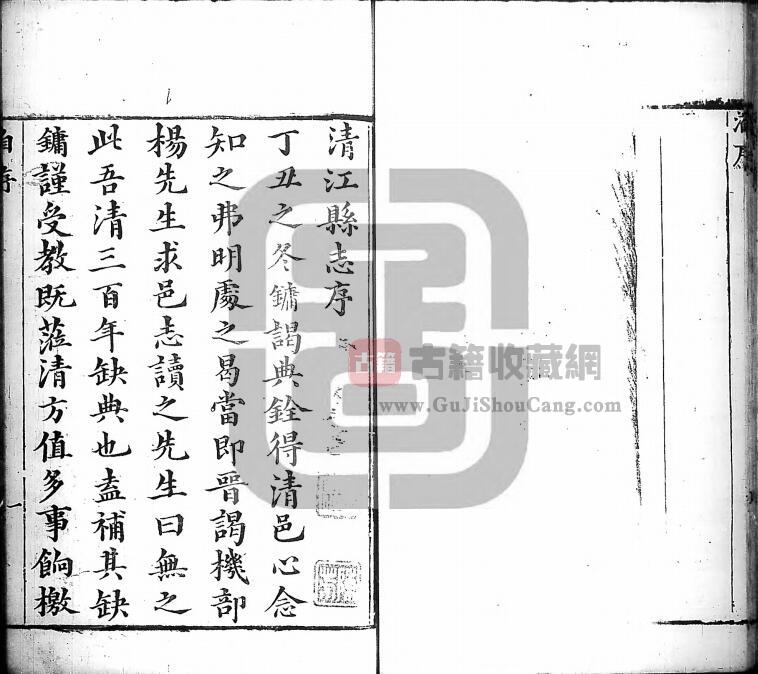 清江縣志序
丁丑之冬鏞謁典銓得清邑心念
知之弗明處之曷當即晉謁機部
楊先生求邑志讀之先生曰無之
此吾清三百年缺典也盍補其缺
鏞謹受教既蒞清方值多事餉檄
自序
一
古籍
古籍收藏網
www.GuJiShouCang.com